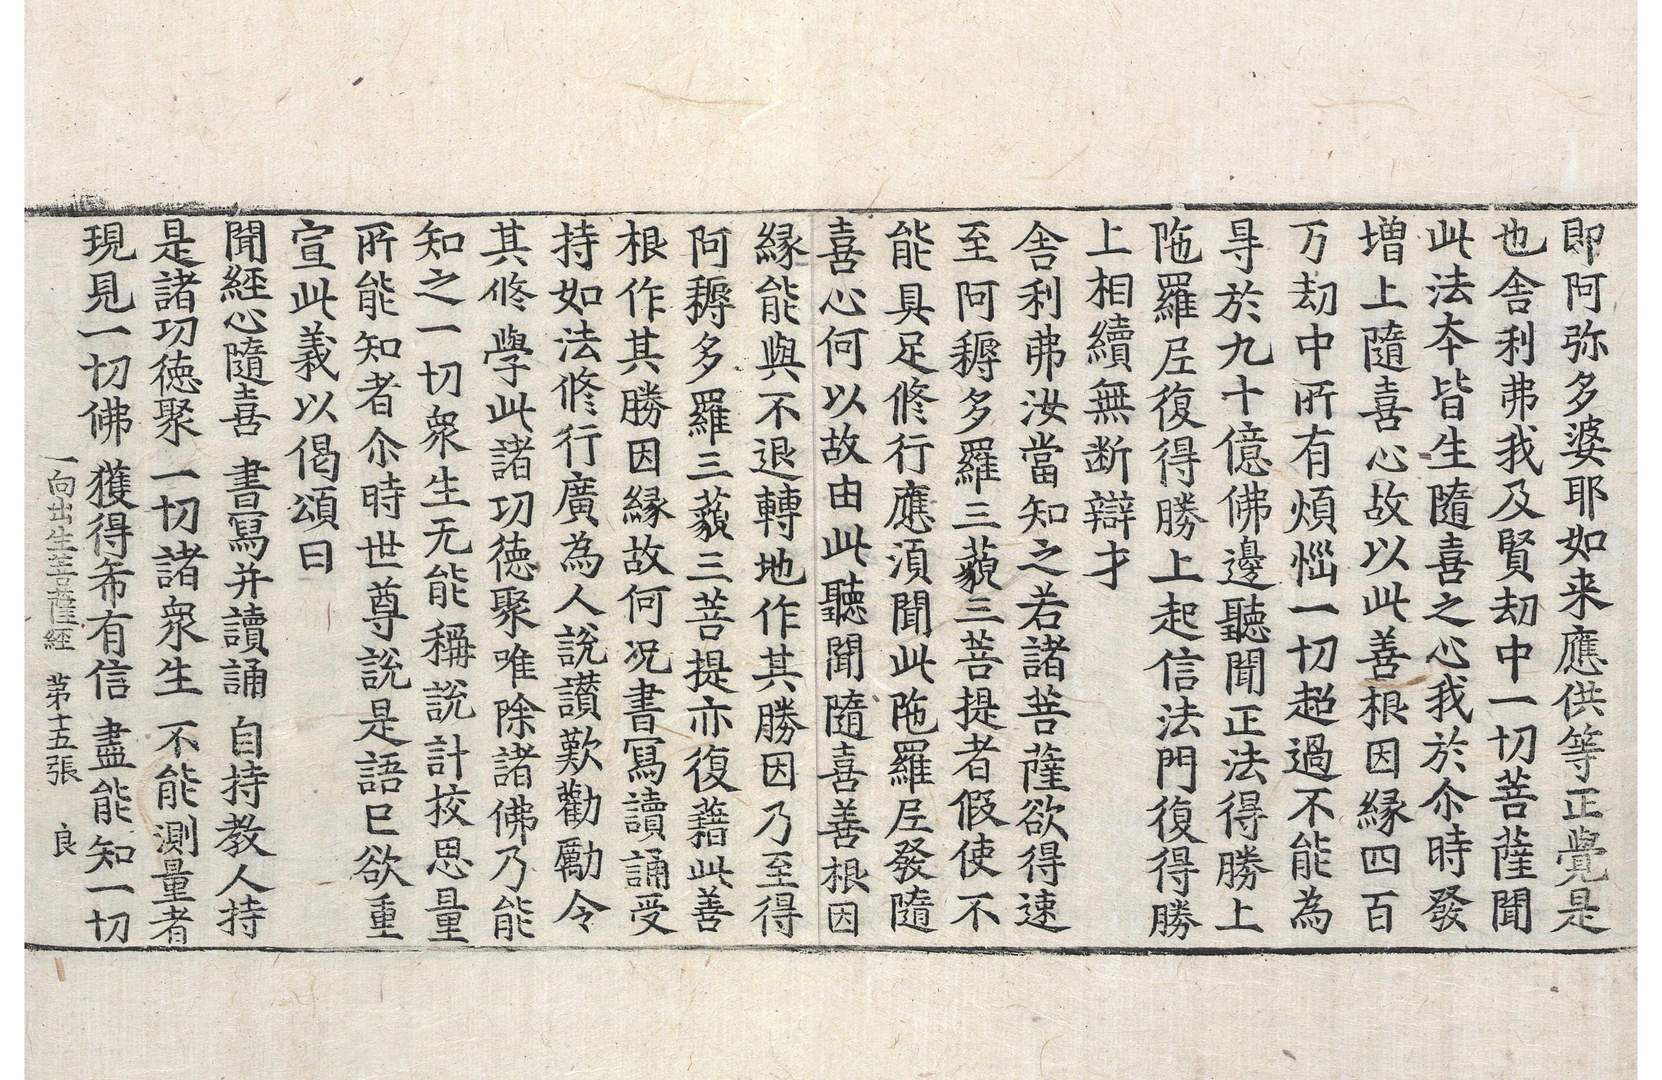 即阿弥多婆耶如来應供等正覺是
也舎利弗我及賢劫中一切菩薩聞
此法本皆生隨喜之心我於尒時發
增上隨喜心故以此善根因縁四百
万劫中所有煩惱一切超過不能為
㝵於九十億佛邊聽聞正法得勝上
陁羅尼復得勝上起信法門復得勝
上相續無断辯才
舎利弗汝當知之若諸菩薩欲得速
至阿耨多羅三藐三菩提者假使不
能具足修行應湏聞此陁羅尼發隨
喜心何以故由此聽聞隨喜善根因
縁能與不退轉地作其勝因乃至得
阿耨多羅三藐三菩提亦復藉此善
根作其勝因縁故何况書寫讀誦受
持如法修行廣為人說讃歎勸勵令
其修學此諸功德聚唯除諸佛乃能
知之一切衆生无能稱說計挍思量
所能知者尒時世尊說是語已欲重
宣此義以偈頌曰
聞經心隨喜 書寫并讀誦 自持教人持
是諸功徳聚 一切諸衆生 不能測量者
現見一切佛 獲得希有信 盡能知一切
一向出生菩薩經 第十五張 良